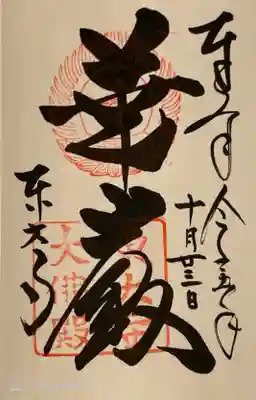 奉拝 令和五年
十月廿三日
華厳
東大寺
大佛殿